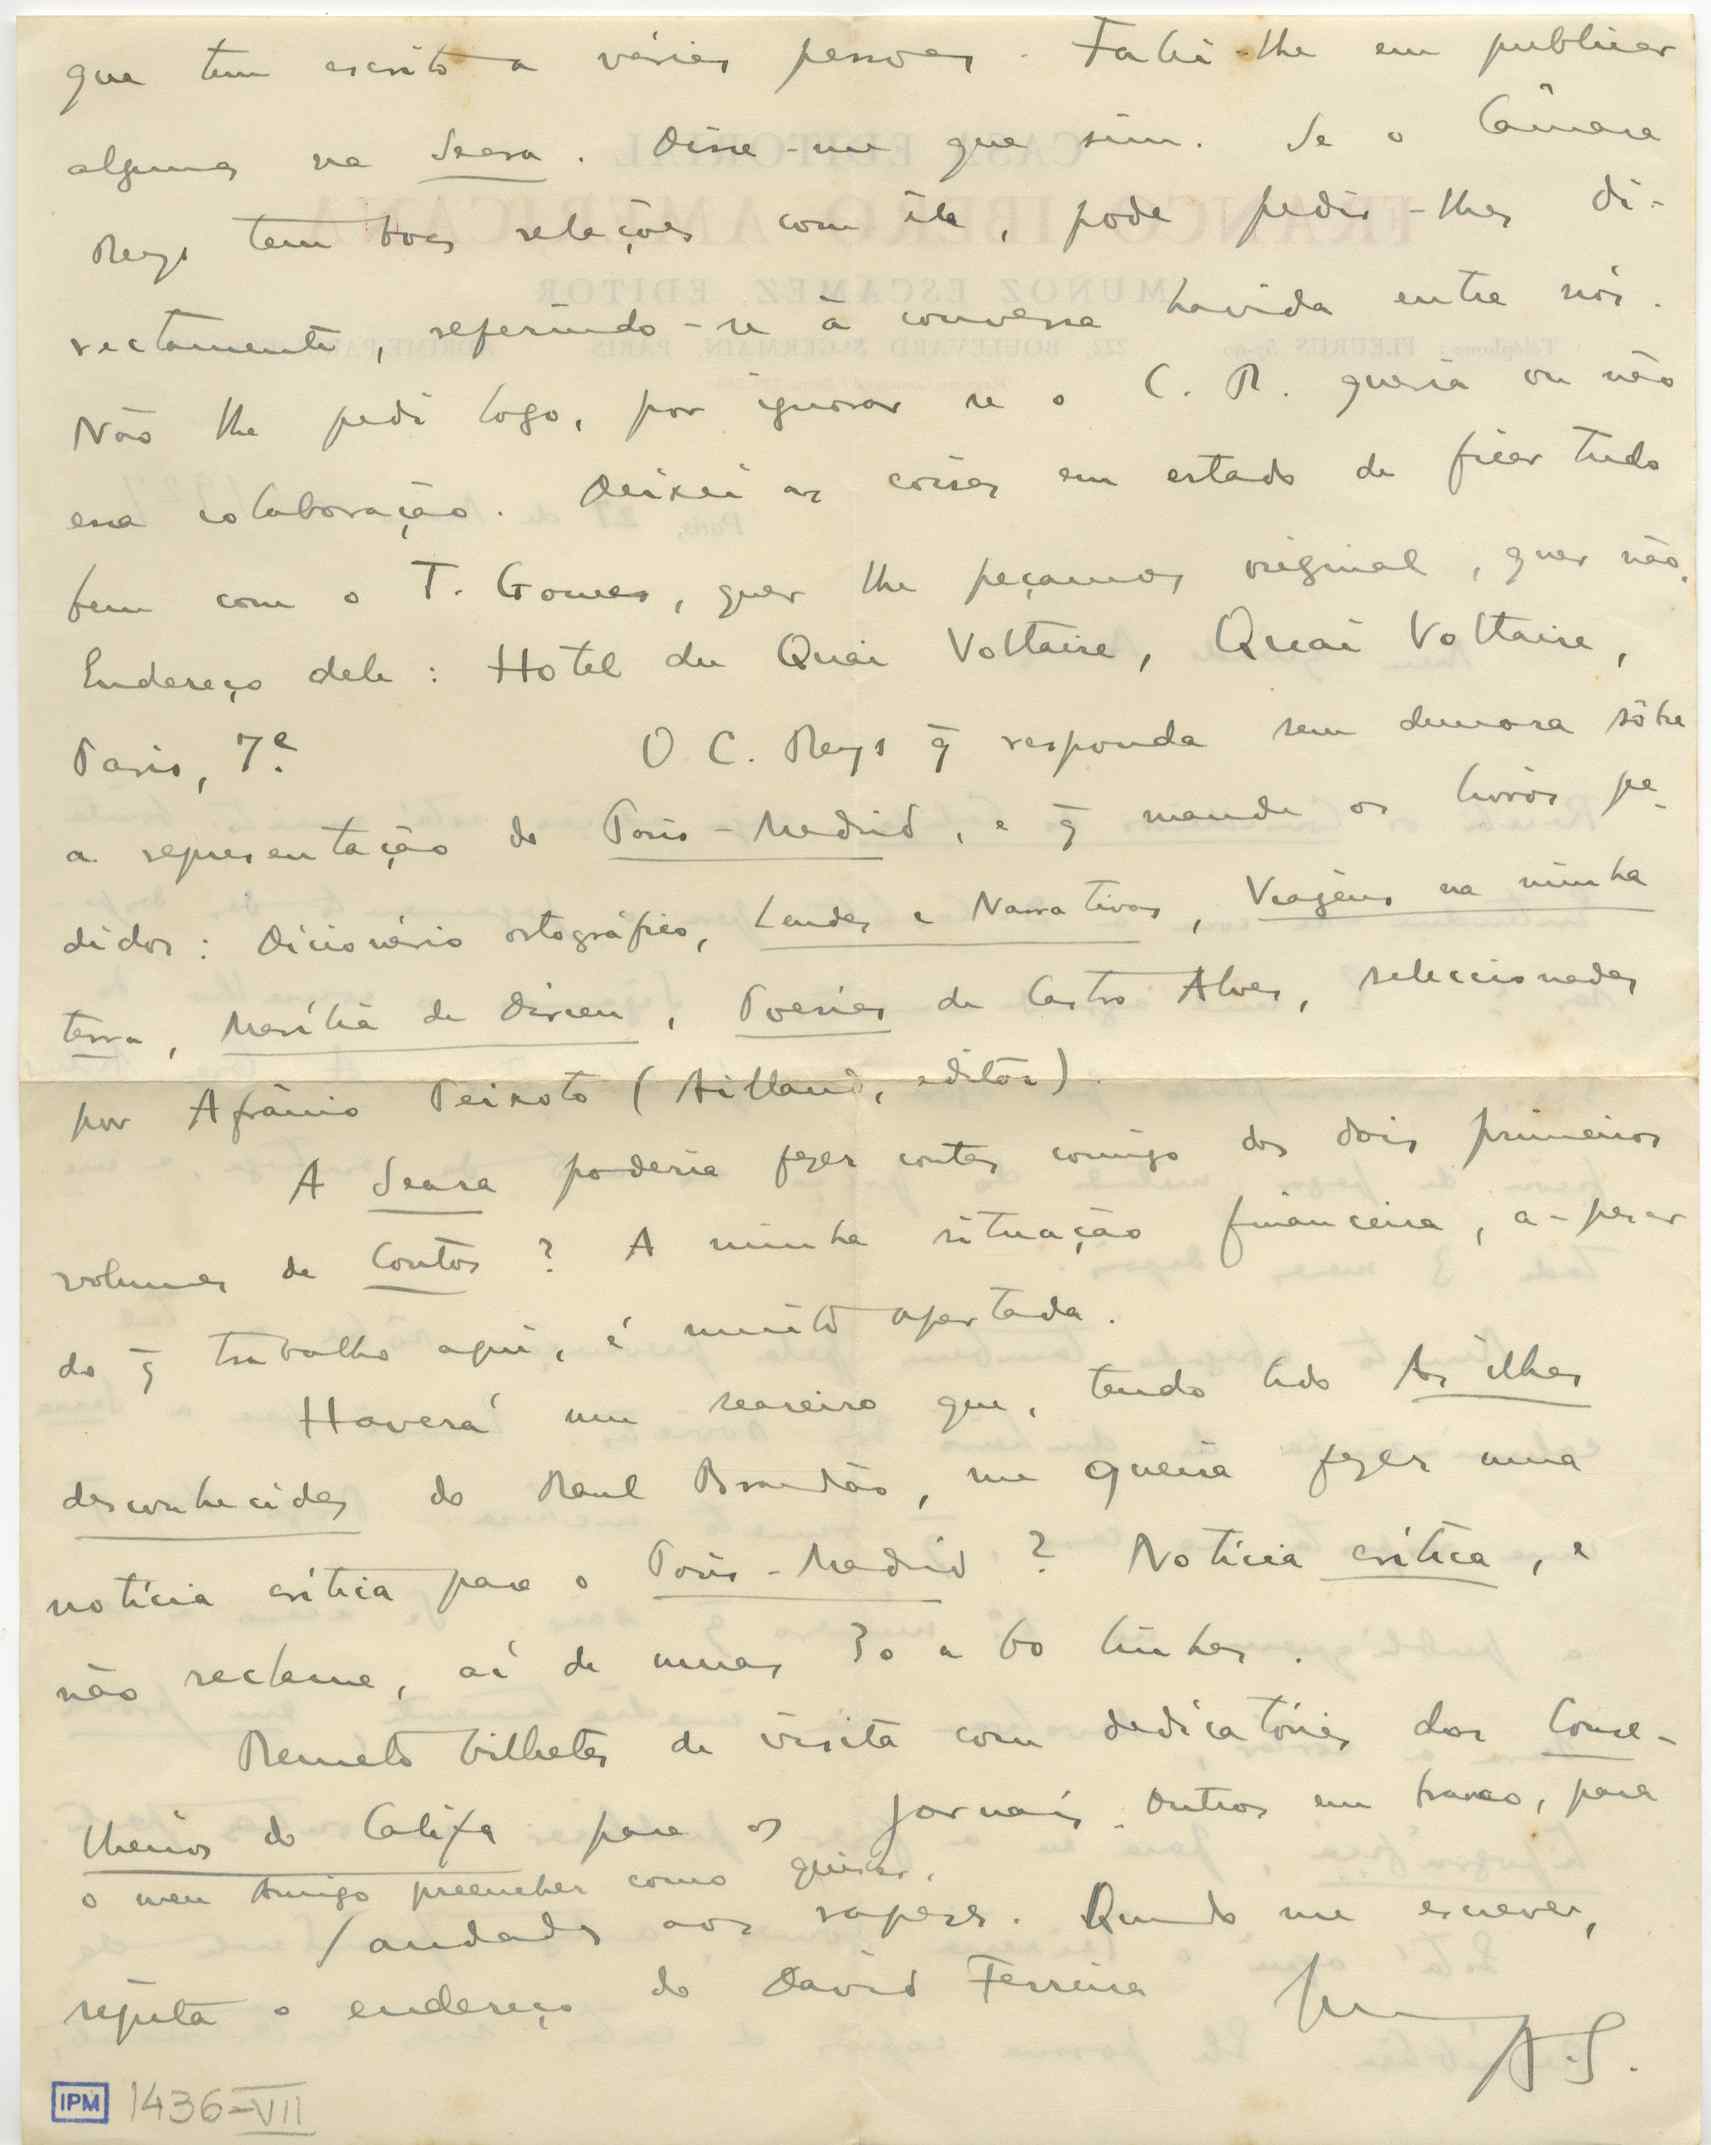 que tem escrito a várias pessoas. Falei-lhe em publicar
algumas na Seara. Disse-me que sim. Se o Câmara
Reys tem boas relações com êle, pode pedir-lhas di-
rectamente, referindo-se à conversa havida entre nós.
Não lhe pedi logo, por ignorar se o C. R. queria ou não
essa colaboração. Deixei as coisas em estado de ficar tudo
bem com o T. Gomes, quer lhe peçamos original, quer não.
Endereço dele: Hotel du Quai Voltaire, Quai Voltaire,
Paris, 7e. O C. Reys q̃ responda sem demora sôbre
a representação do Paris-Madrid, e q̃ mande os livros pe-
didos: Dicionário ortográfico, Lendas e Narrativas, Viagens na minha
terra, Marília de Dirceu, Poesias de Castro Alves, seleccionadas
por Afrânio Peixoto (Aillaud, editor).
A Seara poderia fazer contas comigo dos dois primeiros
volumes de Contos? A minha situação financeira, a-pesar
do q̃ trabalho aqui, é muito apertada.
Haverá um seareiro que, tendo lido As ilhas
desconhecidas do Raul Brandão, me queira fazer uma
notícia crítica para o Paris-Madrid? Notícia crítica, e
não reclame, aí de umas 30 a 60 linhas.
Remeto bilhetes de visita com dedicatórias dos Conse-
lheiros do Califa para os jornais. Outros em branco, para
o meu Amigo preencher como quiser.
Saudades aos rapazes. Quando me escrever,
repita o endereço do David Ferreira
A.S.
IPM 1436-VII
CASA EDITORIAL
FRANCO-IBERO-AMERICANA
MUÑOZ ESCAMEZ, EDITOR
222, BOULEVARD St-GERMAIN, PARIS